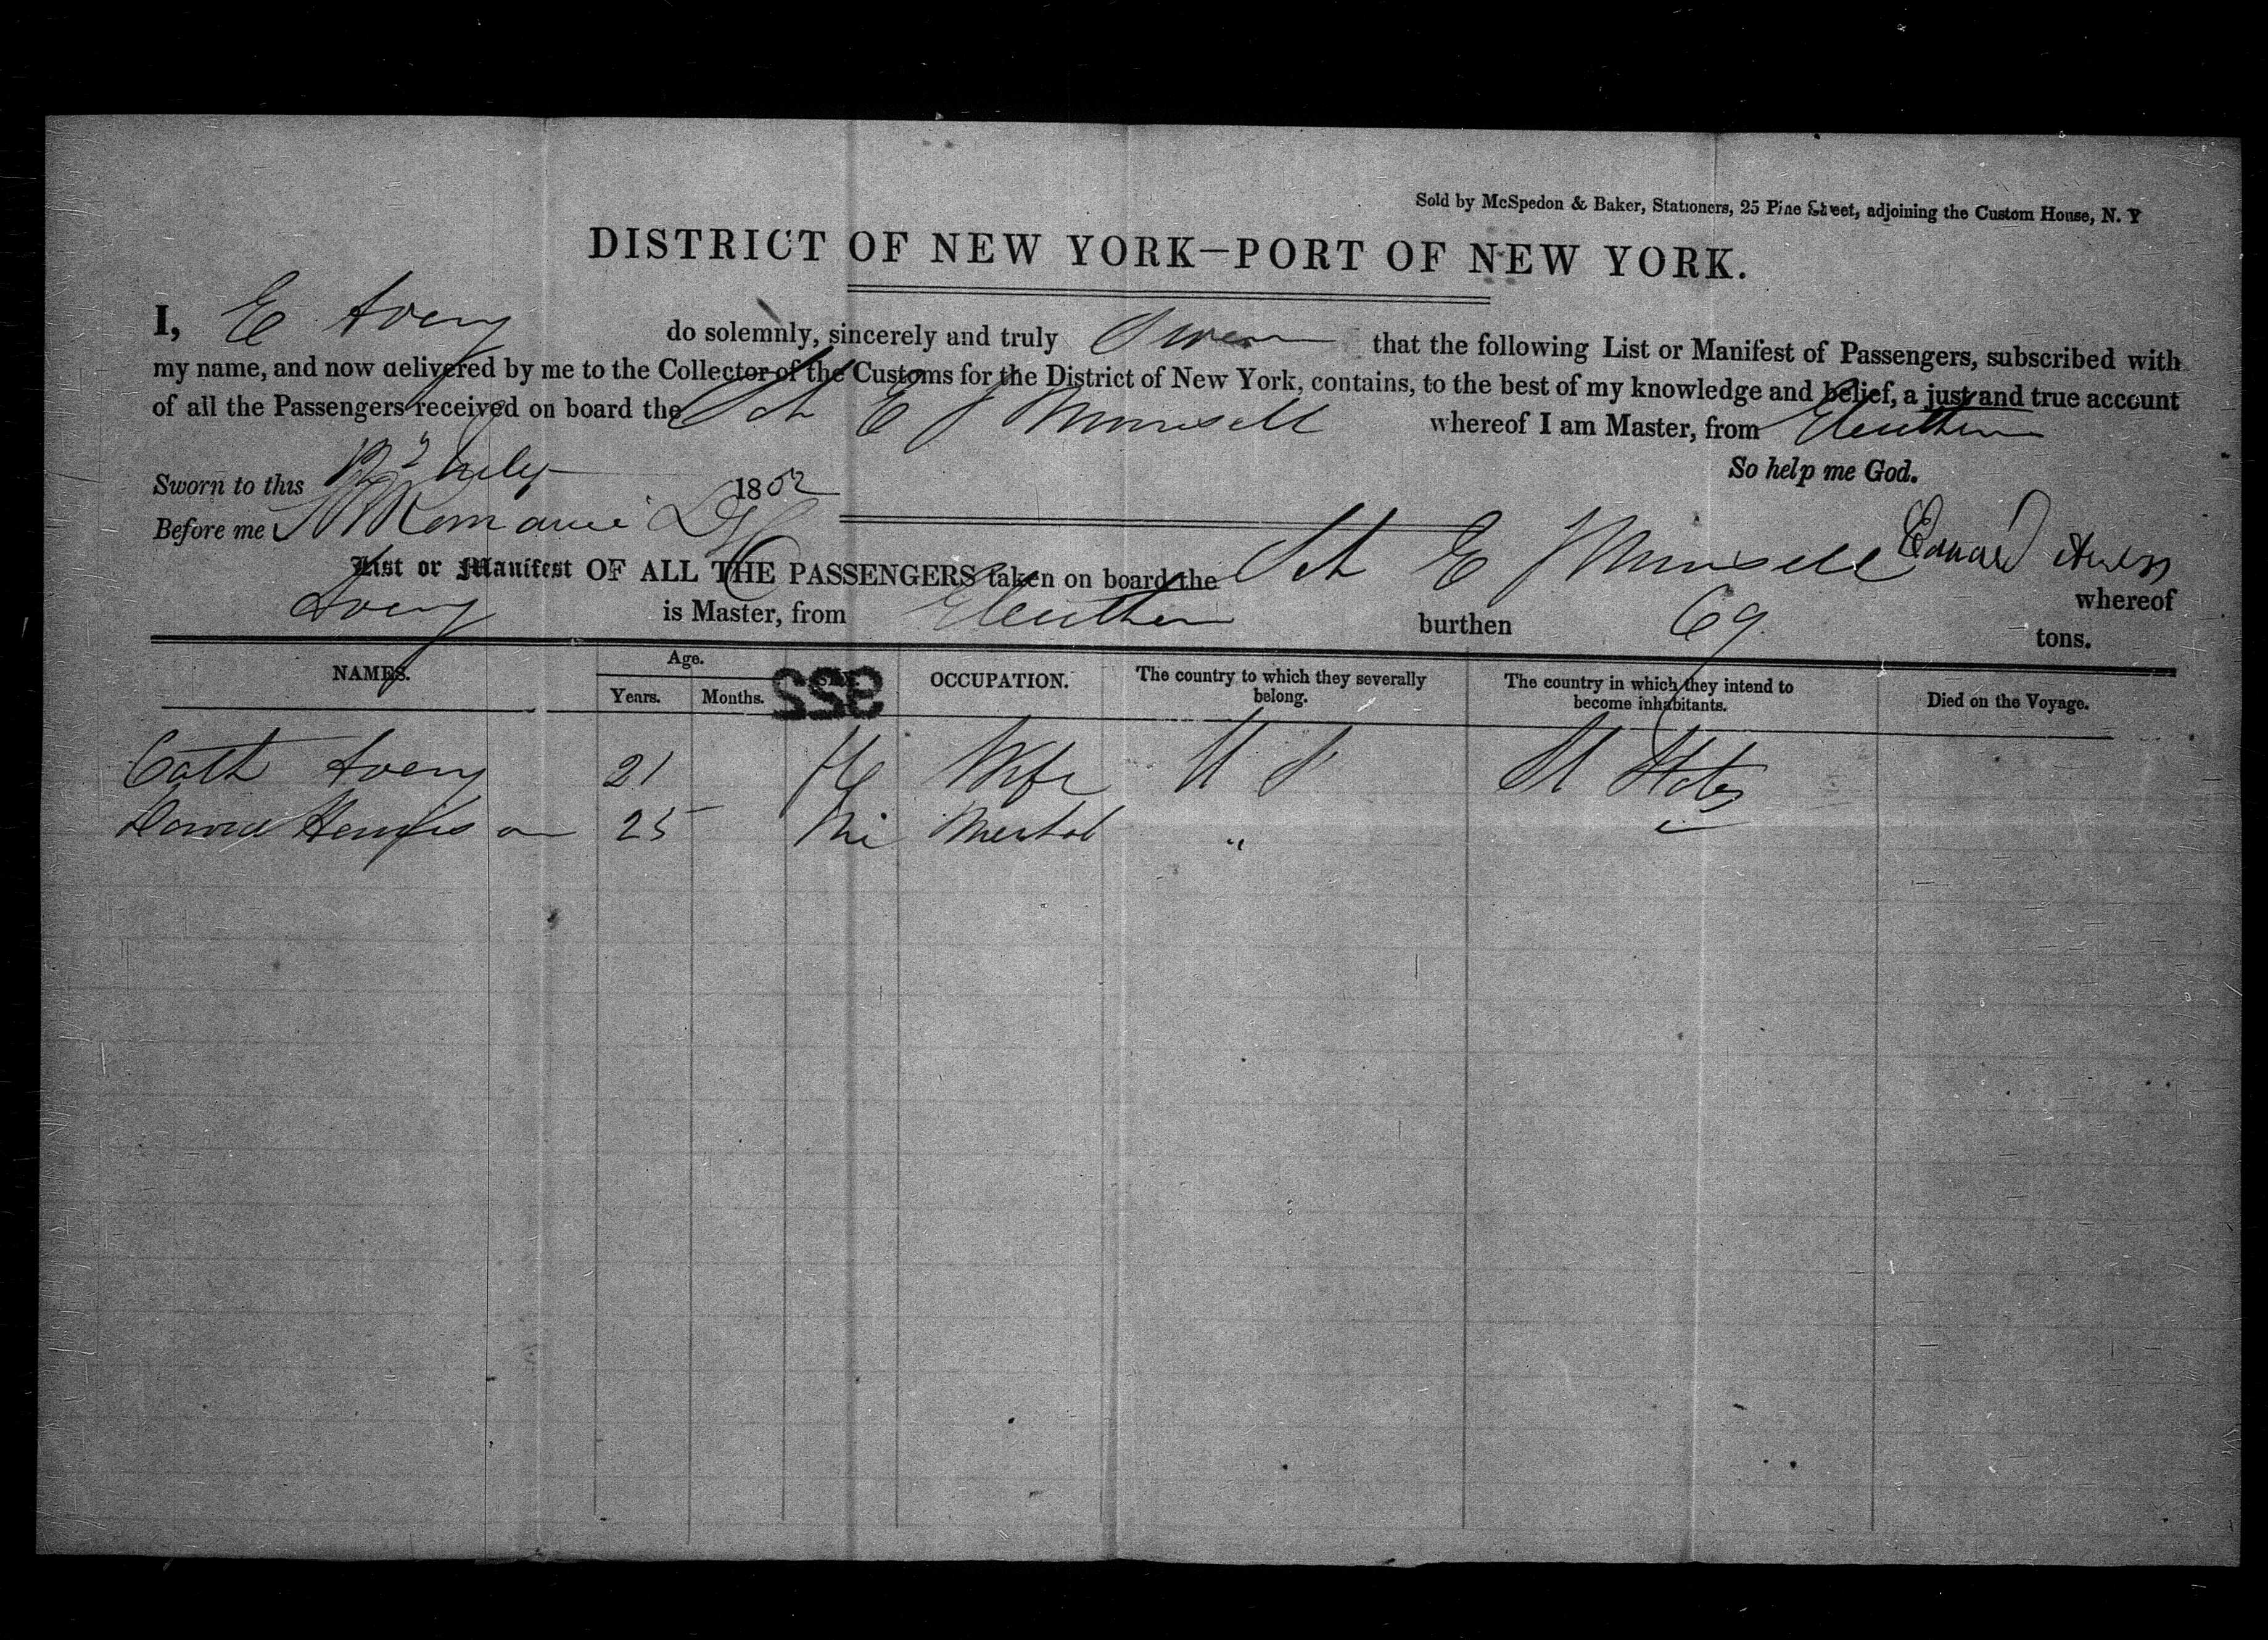 Sold by McSpedon & Baker, Stationers, 25 Pine Street, adjoining the Custom House, N. Y
DISTRICT OF NEW YORK—PORT OF NEW YORK.
I, E Avery do solemnly, sincerely and truly Swear that the following List or Manifest of Passengers, subscribed with
my name, and now delivered by me to the Collector of the Customs for the District of New York, contains, to the best of my knowledge and belief, a just and true account
of all the Passengers received on board the Sch E J Munsell whereof I am Master, from Eleuthera
So help me God.
Sworn to this 12 July 1852
Before me
Edward Avery
List or Manifest OF ALL THE PASSENGERS taken on board the Sch E J Munsell whereof
Avery is Master, from Eleuthera burthen 69 tons.
NAMES. Age. Years. Months. 522 OCCUPATION. The country to which they severally belong. The country in which they intend to become inhabitants. Died on the Voyage.
Cath Avery 21 Fe Wife U S U States
25 "